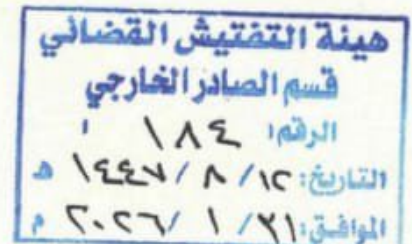 هيئة التفتيش القضائي
قسم الصادر الخارجي
الرقم: ١٨٤
التاريخ: ١٢ / ٨ / ١٤٤٧ هـ
الموافق: ٣١ / ١ / ٢٠٢٦ م